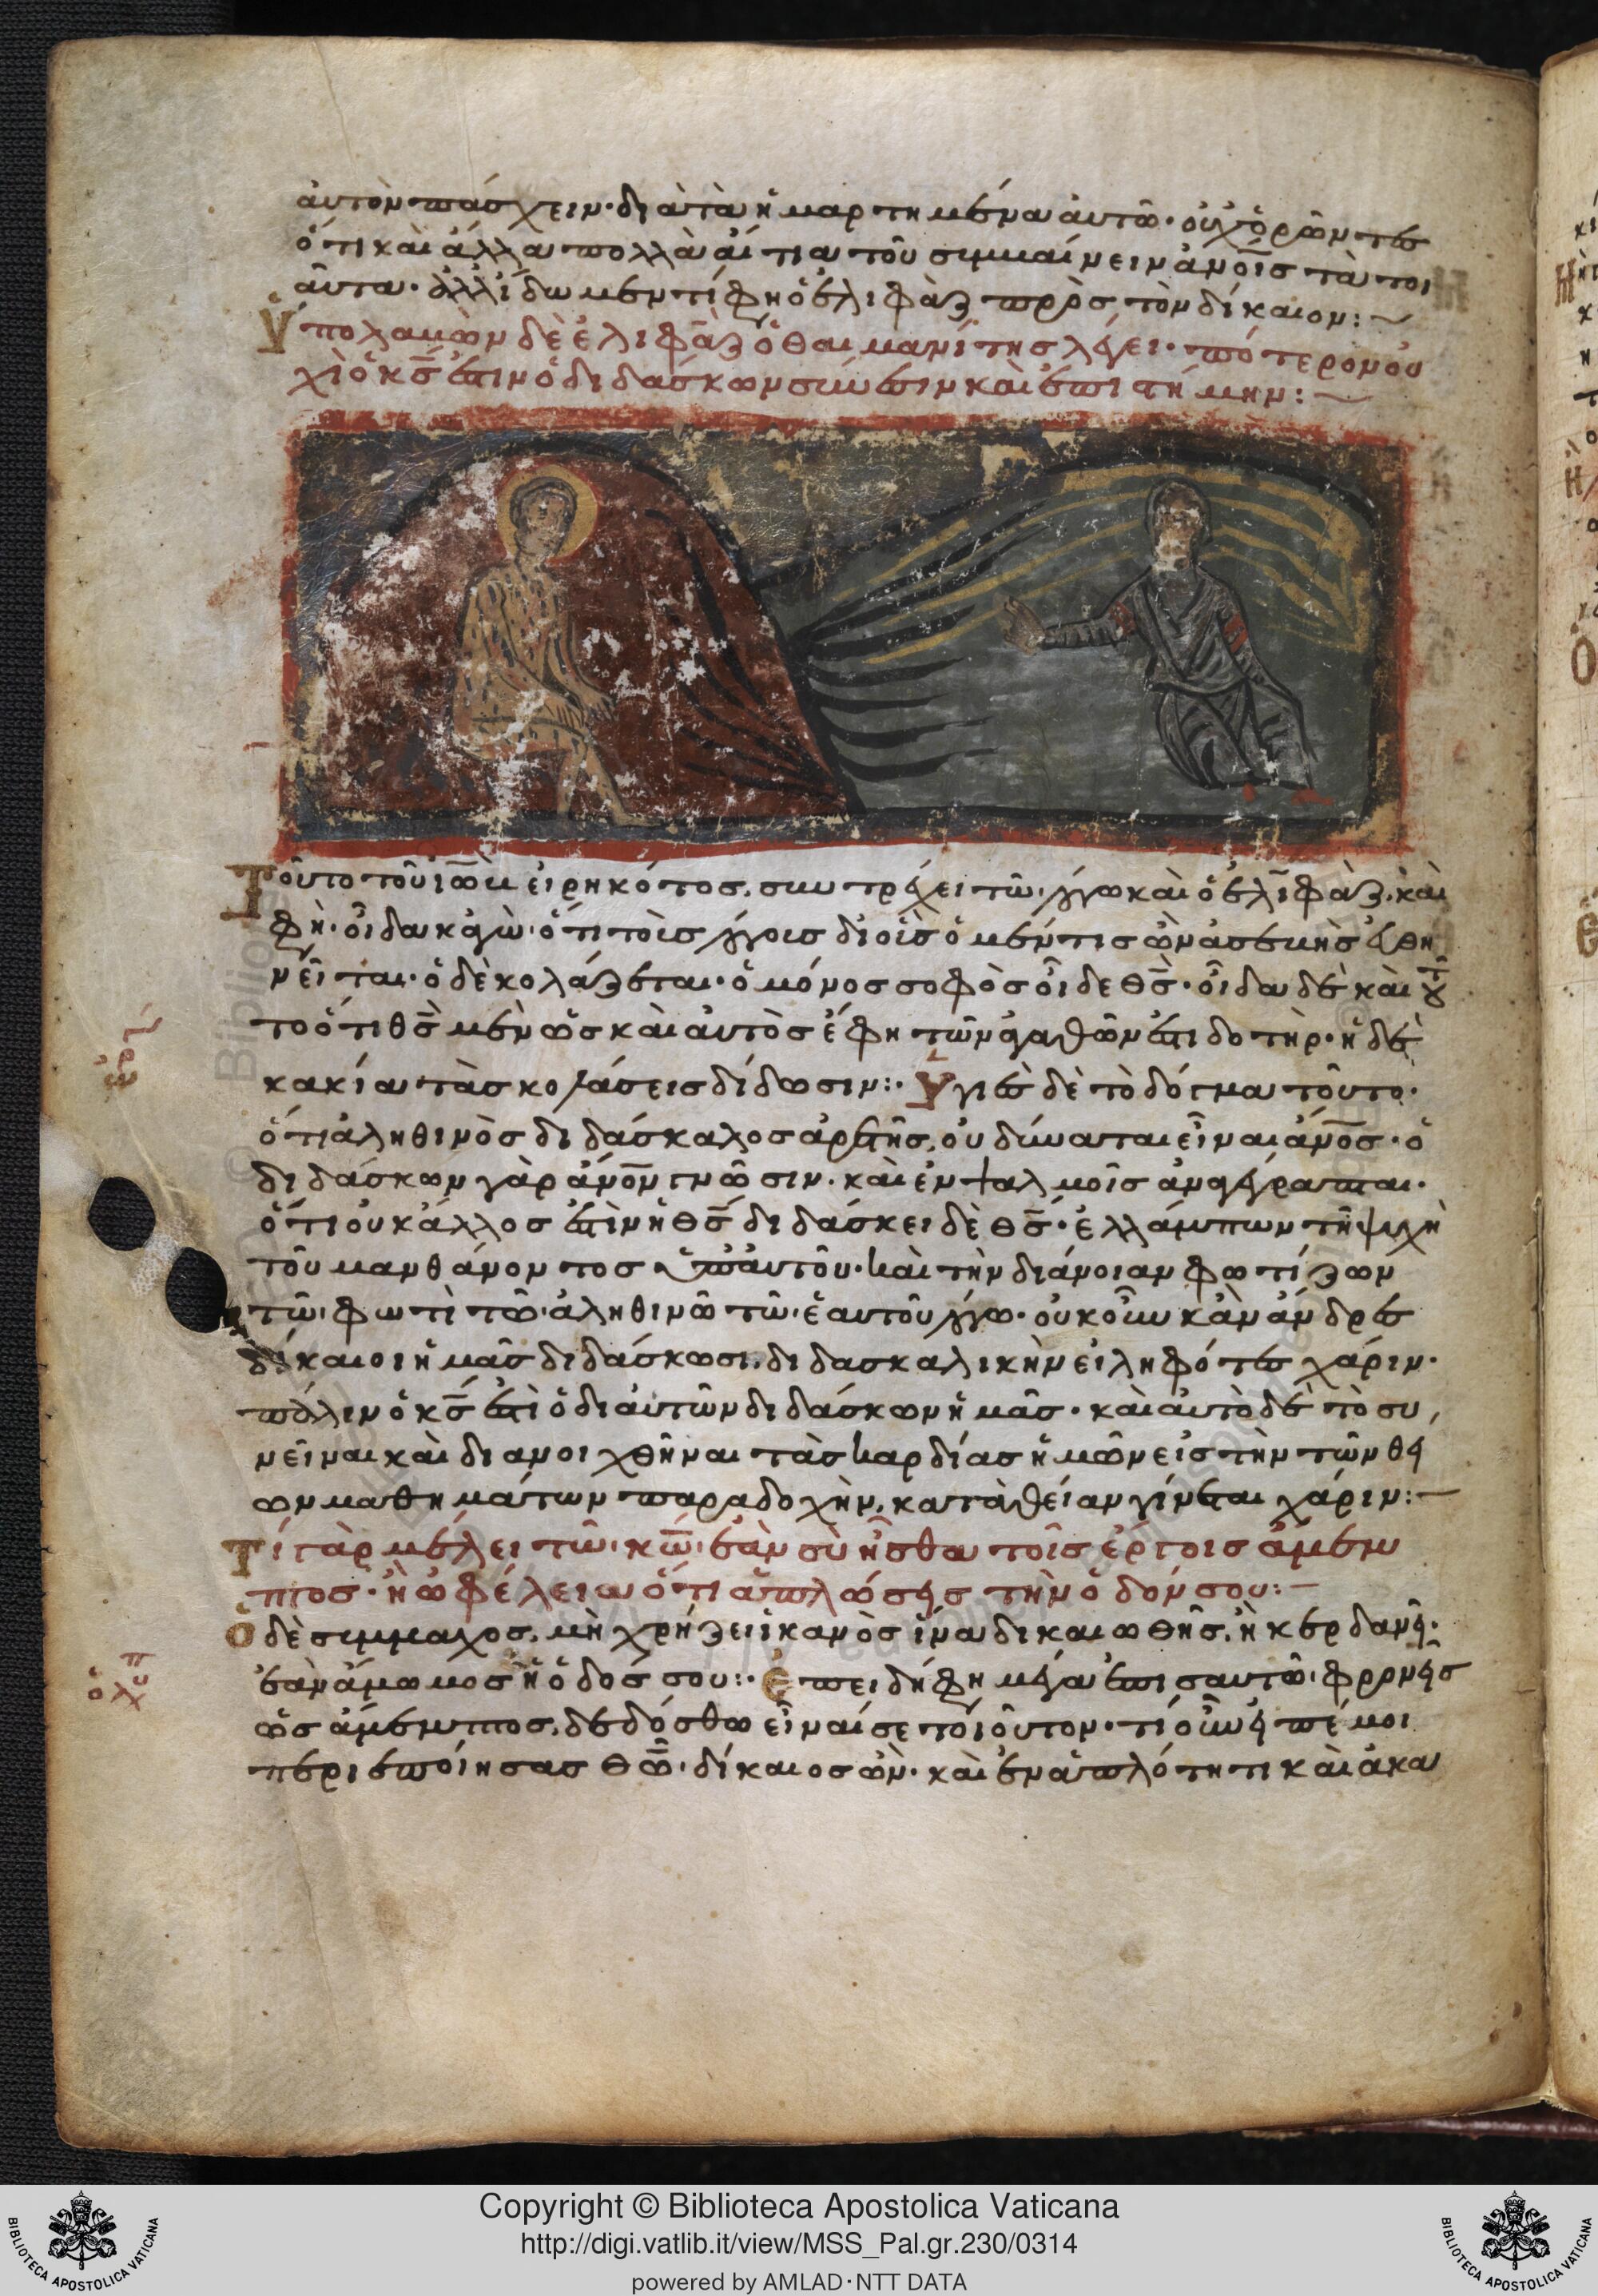 αὐτὸν πάσχειν· διὰ τὰ ἡμαρτημένα αὐτῶ· οὐχ ὁρῶντες
ὅτι καὶ ἄλλα πολλὰ αἴτια τοῦ συμβαίνειν ἀν̅ο̅ις τὰ τοι
αῦτα· ἀλλ' ἴδωμεν τί φη ὁ ἐλιφὰζ πρὸς τὸν δίκαιον:~
Ὑπολαβὼν δὲ ἐλιφὰζ ὁ θαιμανίτης λέγει· πότερον οὐ
χὶ ὁ κ̅ς̅ ἐστιν ὁ διδάσκων σύνεσιν καὶ ἐπιστήμην:~
Τοῦτο τοῦ ἰὼβ εἰρηκότος, συντρέχει τῶ λόγω καὶ ὁ ἐλιφὰζ· καὶ
φη· οἶδα κἀγὼ· ὅτι τοῖς λόγοις δι' οἷς ὁ μέν τις ὢν ἀσεβὴς εὐθη
νεῖται· ὁ δὲ κολάζεται· ὁ μόνος σοφὸς οἶδε θ̅ς̅· οἶδα δὲ καὶ τοῦ
το ὅτι θ̅ς̅ μὲν ὡς καὶ αὐτὸς ἔφη τῶν ἀγαθῶν ἐστι δοτὴρ· ἡ δὲ
κακία τὰς κολάσεις δίδωσιν:· Ὑγιὲς δὲ τὸ δόγμα τοῦτο·
ὅτι ἀληθινὸς διδάσκαλος ἀρετῆς, οὐ δύναται εἶναι ἀν̅ο̅ς· ὁ
διδάσκων γὰρ ἀν̅ο̅ν γνῶσιν· καὶ ἐν ψαλμοῖς ἀναγέγραπται·
ὅτι οὐκ ἄλλος ἐστὶν ἢ θ̅ς̅ διδάσκει δὲ θ̅ς̅· ἐλλάμπων τῆ ψυχῆ
τοῦ μανθάνοντος ὑπ' αὐτοῦ· καὶ τὴν διάνοιαν φωτίζων
τῶ φωτὶ τῶ ἀληθινῶ τῶ ἑαυτοῦ λόγω· οὐκοῦν κἂν ἄνδρες
δίκαιοι ἡμᾶς διδάσκωσι, διδασκαλικὴν εἰληφότες χάριν·
πάλιν ὁ κ̅ς̅ ἐστὶ ὁ δι' αὐτῶν διδάσκων ἡμᾶς· καὶ αὐτὸ δὲ τὸ συ
νεῖναι καὶ διανοιχθῆναι τὰς καρδίας ἡμῶν εἰς τὴν τῶν θεί
ων μαθημάτων παραδοχὴν, κατὰ θείαν γίνεται χάριν:~
Τί γὰρ μέλει τῶ κ̅ω̅· ἐὰν σὺ ἦσθα τοῖς ἔργοις ἄμεμ
πτος· ἢ ὠφέλεια ὅτι ἁπλώσης τὴν ὁδόν σου:~
Ὁ δὲ σύμμαχος, μὴ χρήζει ἱκανὸς ἵνα δικαιωθῆς, ἢ κερδανεῖ·
ἐὰν ἄμωμος ἦ ὁδός σου:· Ἐπειδή φη μέγα ἐπὶ σαυτῶ φρονεῖς
ὡς ἄμεμπτος, δεδόσθω εἶναί σε τοιοῦτον· τί οὖν εἰπέ μοι
περιεποίησας θ̅ω̅· δίκαιος ὢν· καὶ ἐν ἁπλότητι καὶ ἀκα
Copyright © Biblioteca Apostolica Vaticana
http://digi.vatlib.it/view/MSS_Pal.gr.230/0314
powered by AMLAD·NTT DATA
BIBLIOTECA APOSTOLICA VATICANA
BIBLIOTECA APOSTOLICA VATICANA